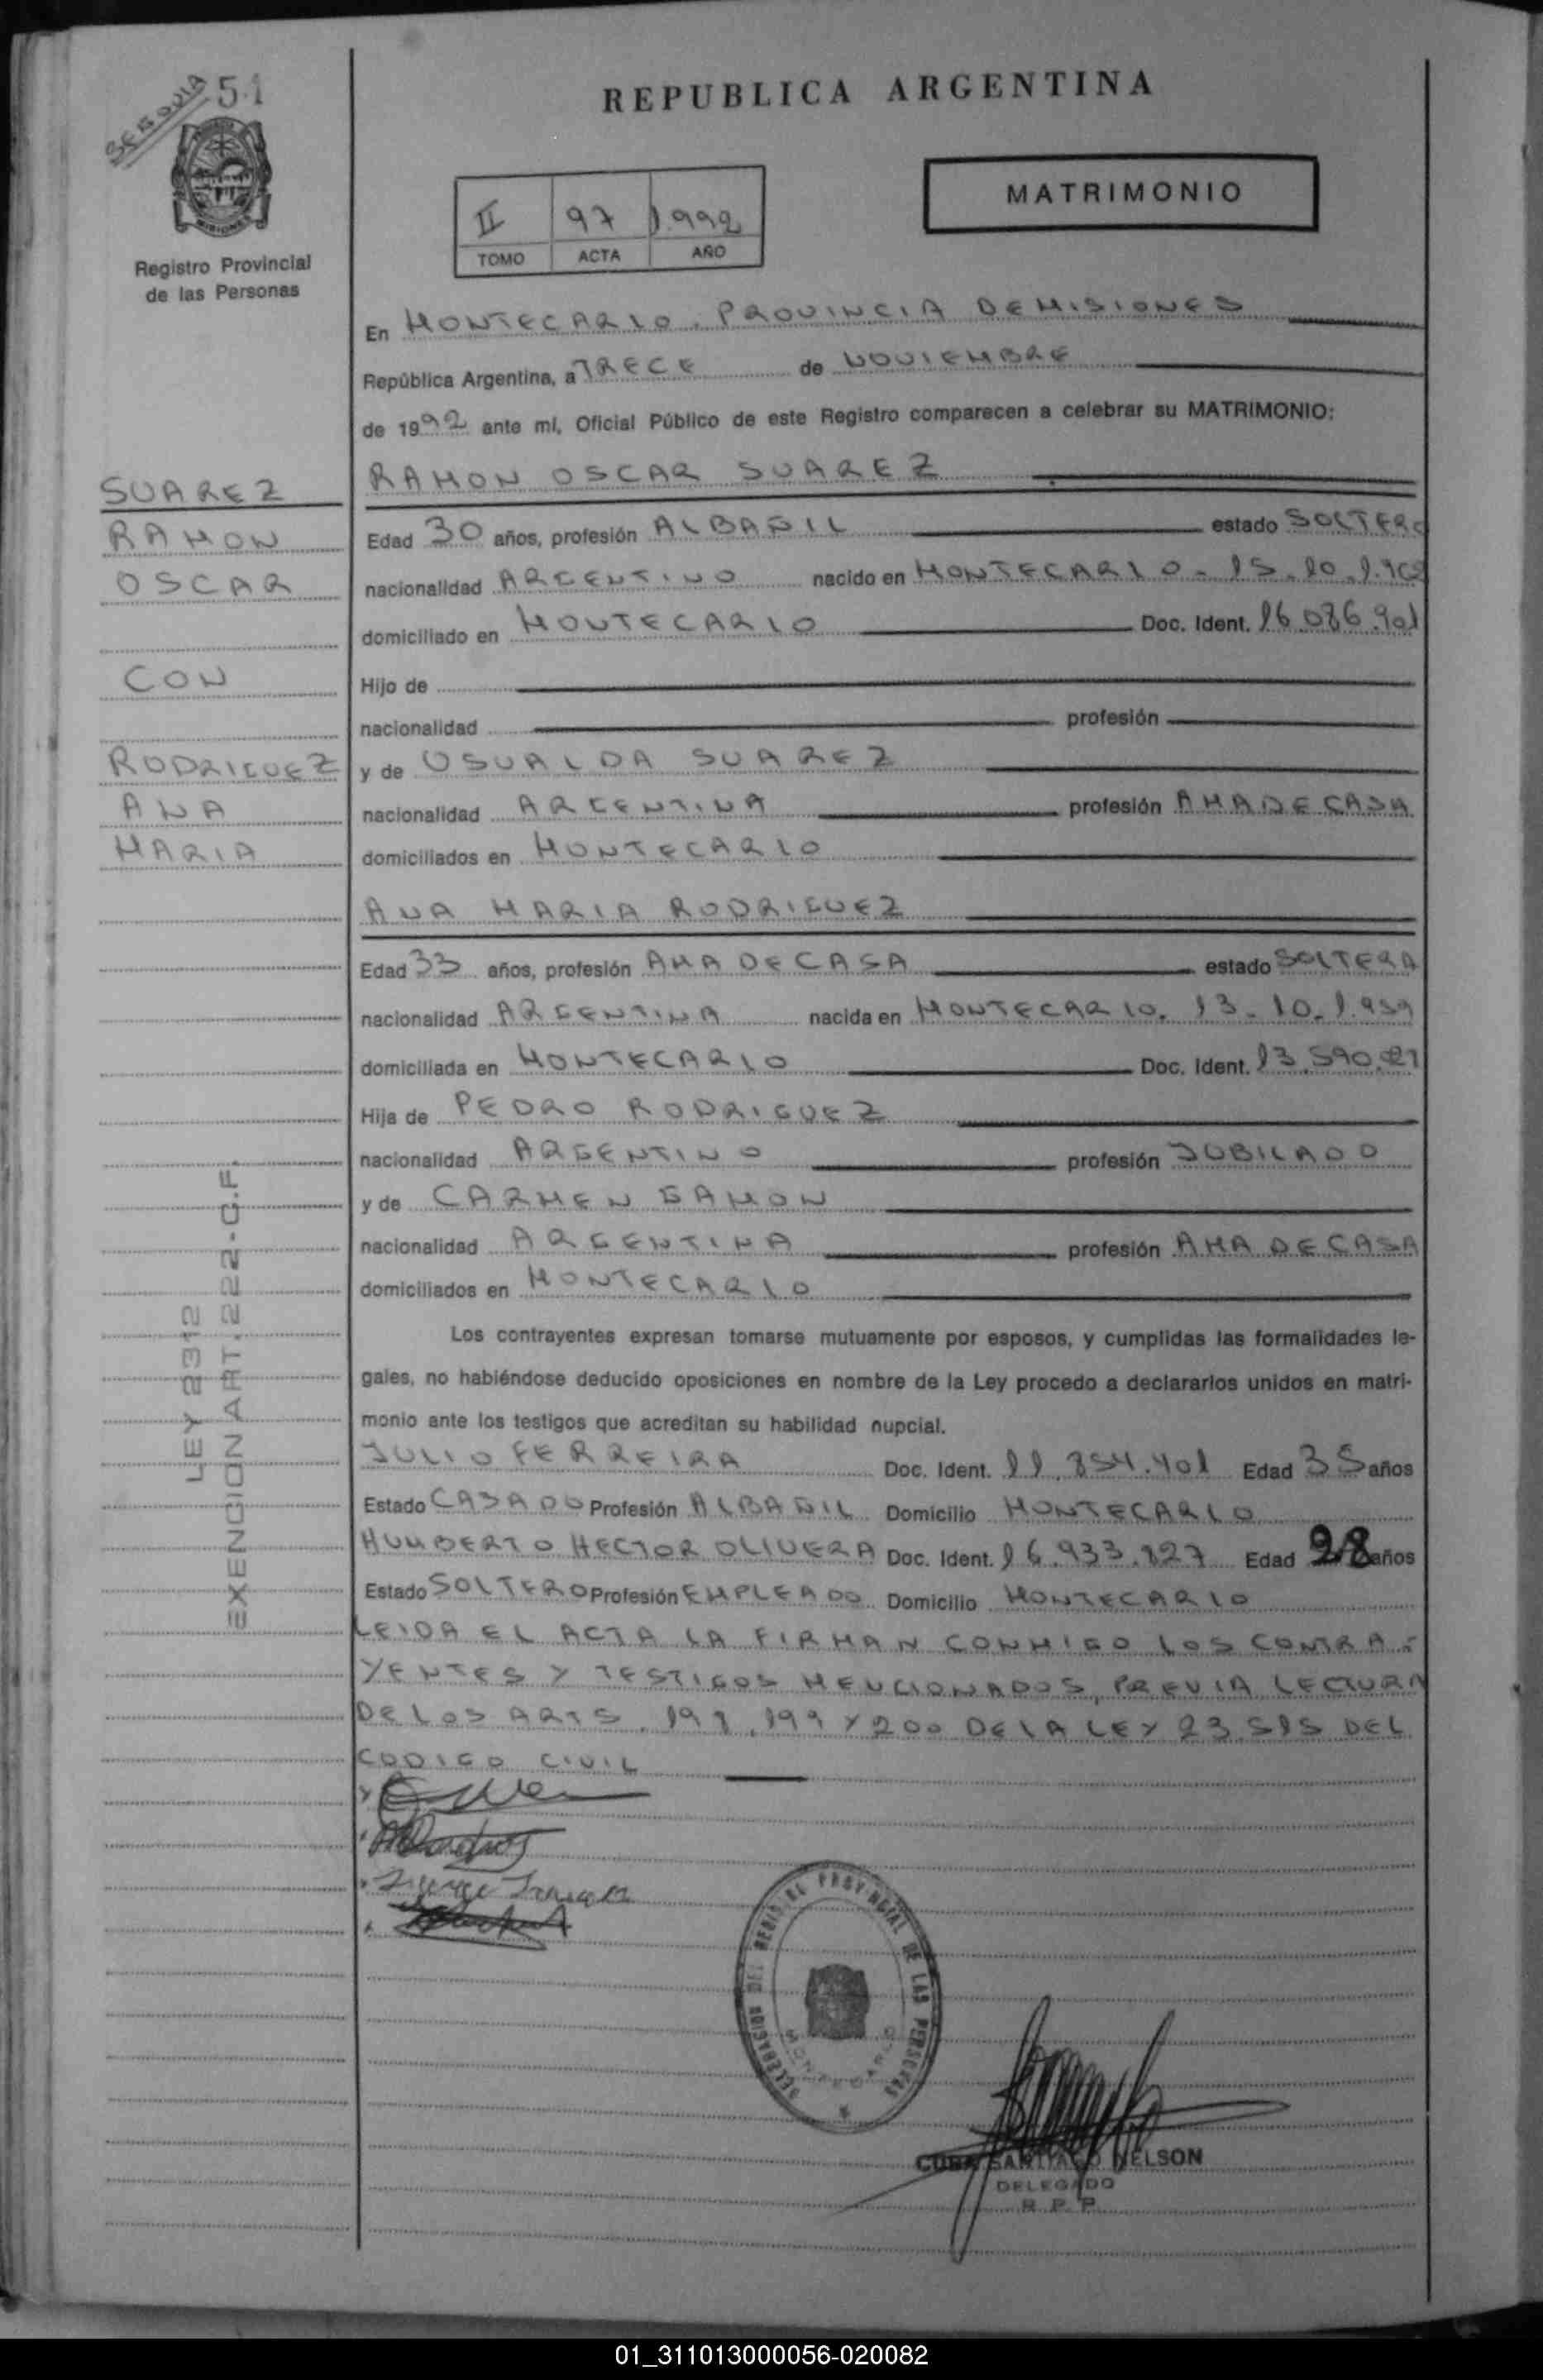 SEGOVIA
51
MISIONES
Registro Provincial
de las Personas
REPUBLICA ARGENTINA
II 97 1.992
TOMO ACTA AÑO
MATRIMONIO
En MONTECARLO. PROVINCIA DE MISIONES
República Argentina, a TRECE de NOVIEMBRE
de 1992 ante mí, Oficial Público de este Registro comparecen a celebrar su MATRIMONIO:
RAMON OSCAR SUAREZ
Edad 30 años, profesión ALBAÑIL estado SOLTERO
nacionalidad ARGENTINO nacido en MONTECARLO - 15.10.1.962
domiciliado en MONTECARLO Doc. Ident. 16.086.901
Hijo de
nacionalidad profesión
y de OSVALDA SUAREZ
nacionalidad ARGENTINA profesión AMA DE CASA
domiciliados en MONTECARLO
ANA MARIA RODRIGUEZ
Edad 33 años, profesión AMA DE CASA estado SOLTERA
nacionalidad ARGENTINA nacida en MONTECARLO. 13-10.1.959
domiciliada en MONTECARLO Doc. Ident.
Hija de PEDRO RODRIGUEZ
nacionalidad ARGENTINO profesión JUBILADO
y de CARMEN GAMON
nacionalidad ARGENTINA profesión AMA DE CASA
domiciliados en MONTECARLO
Los contrayentes expresan tomarse mutuamente por esposos, y cumplidas las formalidades le-
gales, no habiéndose deducido oposiciones en nombre de la Ley procedo a declararlos unidos en matri-
monio ante los testigos que acreditan su habilidad nupcial.
JULIO FERREIRA Doc. Ident. 11.854.401 Edad 35 años
Estado CASADO Profesión ALBAÑIL Domicilio MONTECARLO
HUMBERTO HECTOR OLIVERA Doc. Ident. 16.933.827 Edad 28 años
Estado SOLTERO Profesión EMPLEADO Domicilio MONTECARLO
LEIDA EL ACTA LA FIRMAN CONMIGO LOS CONTRA-
YENTES Y TESTIGOS MENCIONADOS, PREVIA LECTURA
DE LOS ARTS. 198, 199 Y 200 DE LA LEY 23.515 DEL
CODIGO CIVIL
SUAREZ
RAMON
OSCAR
CON
RODRIGUEZ
ANA
MARIA
LEY 2312
EXENCION ART. 222-C.F.
DELEGACION DEL REGISTRO PROVINCIAL DE LAS PERSONAS
MONTECARLO
SANTIAGO NELSON
DELEGADO
R. P. P.
01_311013000056-020082